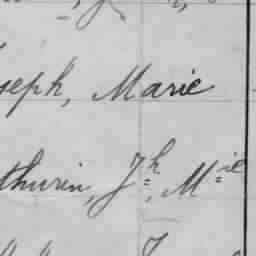 seph, Marie
thurin, Jh, Mie